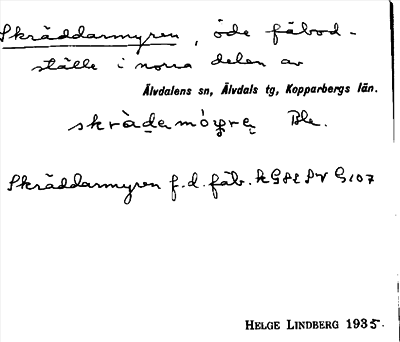 Skräddarmyren, öde fäbod-
ställe i norra delen av
Älvdalens sn, Älvdals tg, Kopparbergs län.
skràdamóyrę Ble.
Skräddarmyren f.d. fäb. SV G107
HELGE LINDBERG 1935.